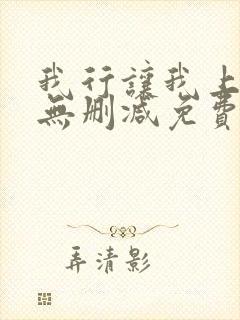 我行讓我上
無刪減免費
弄清影